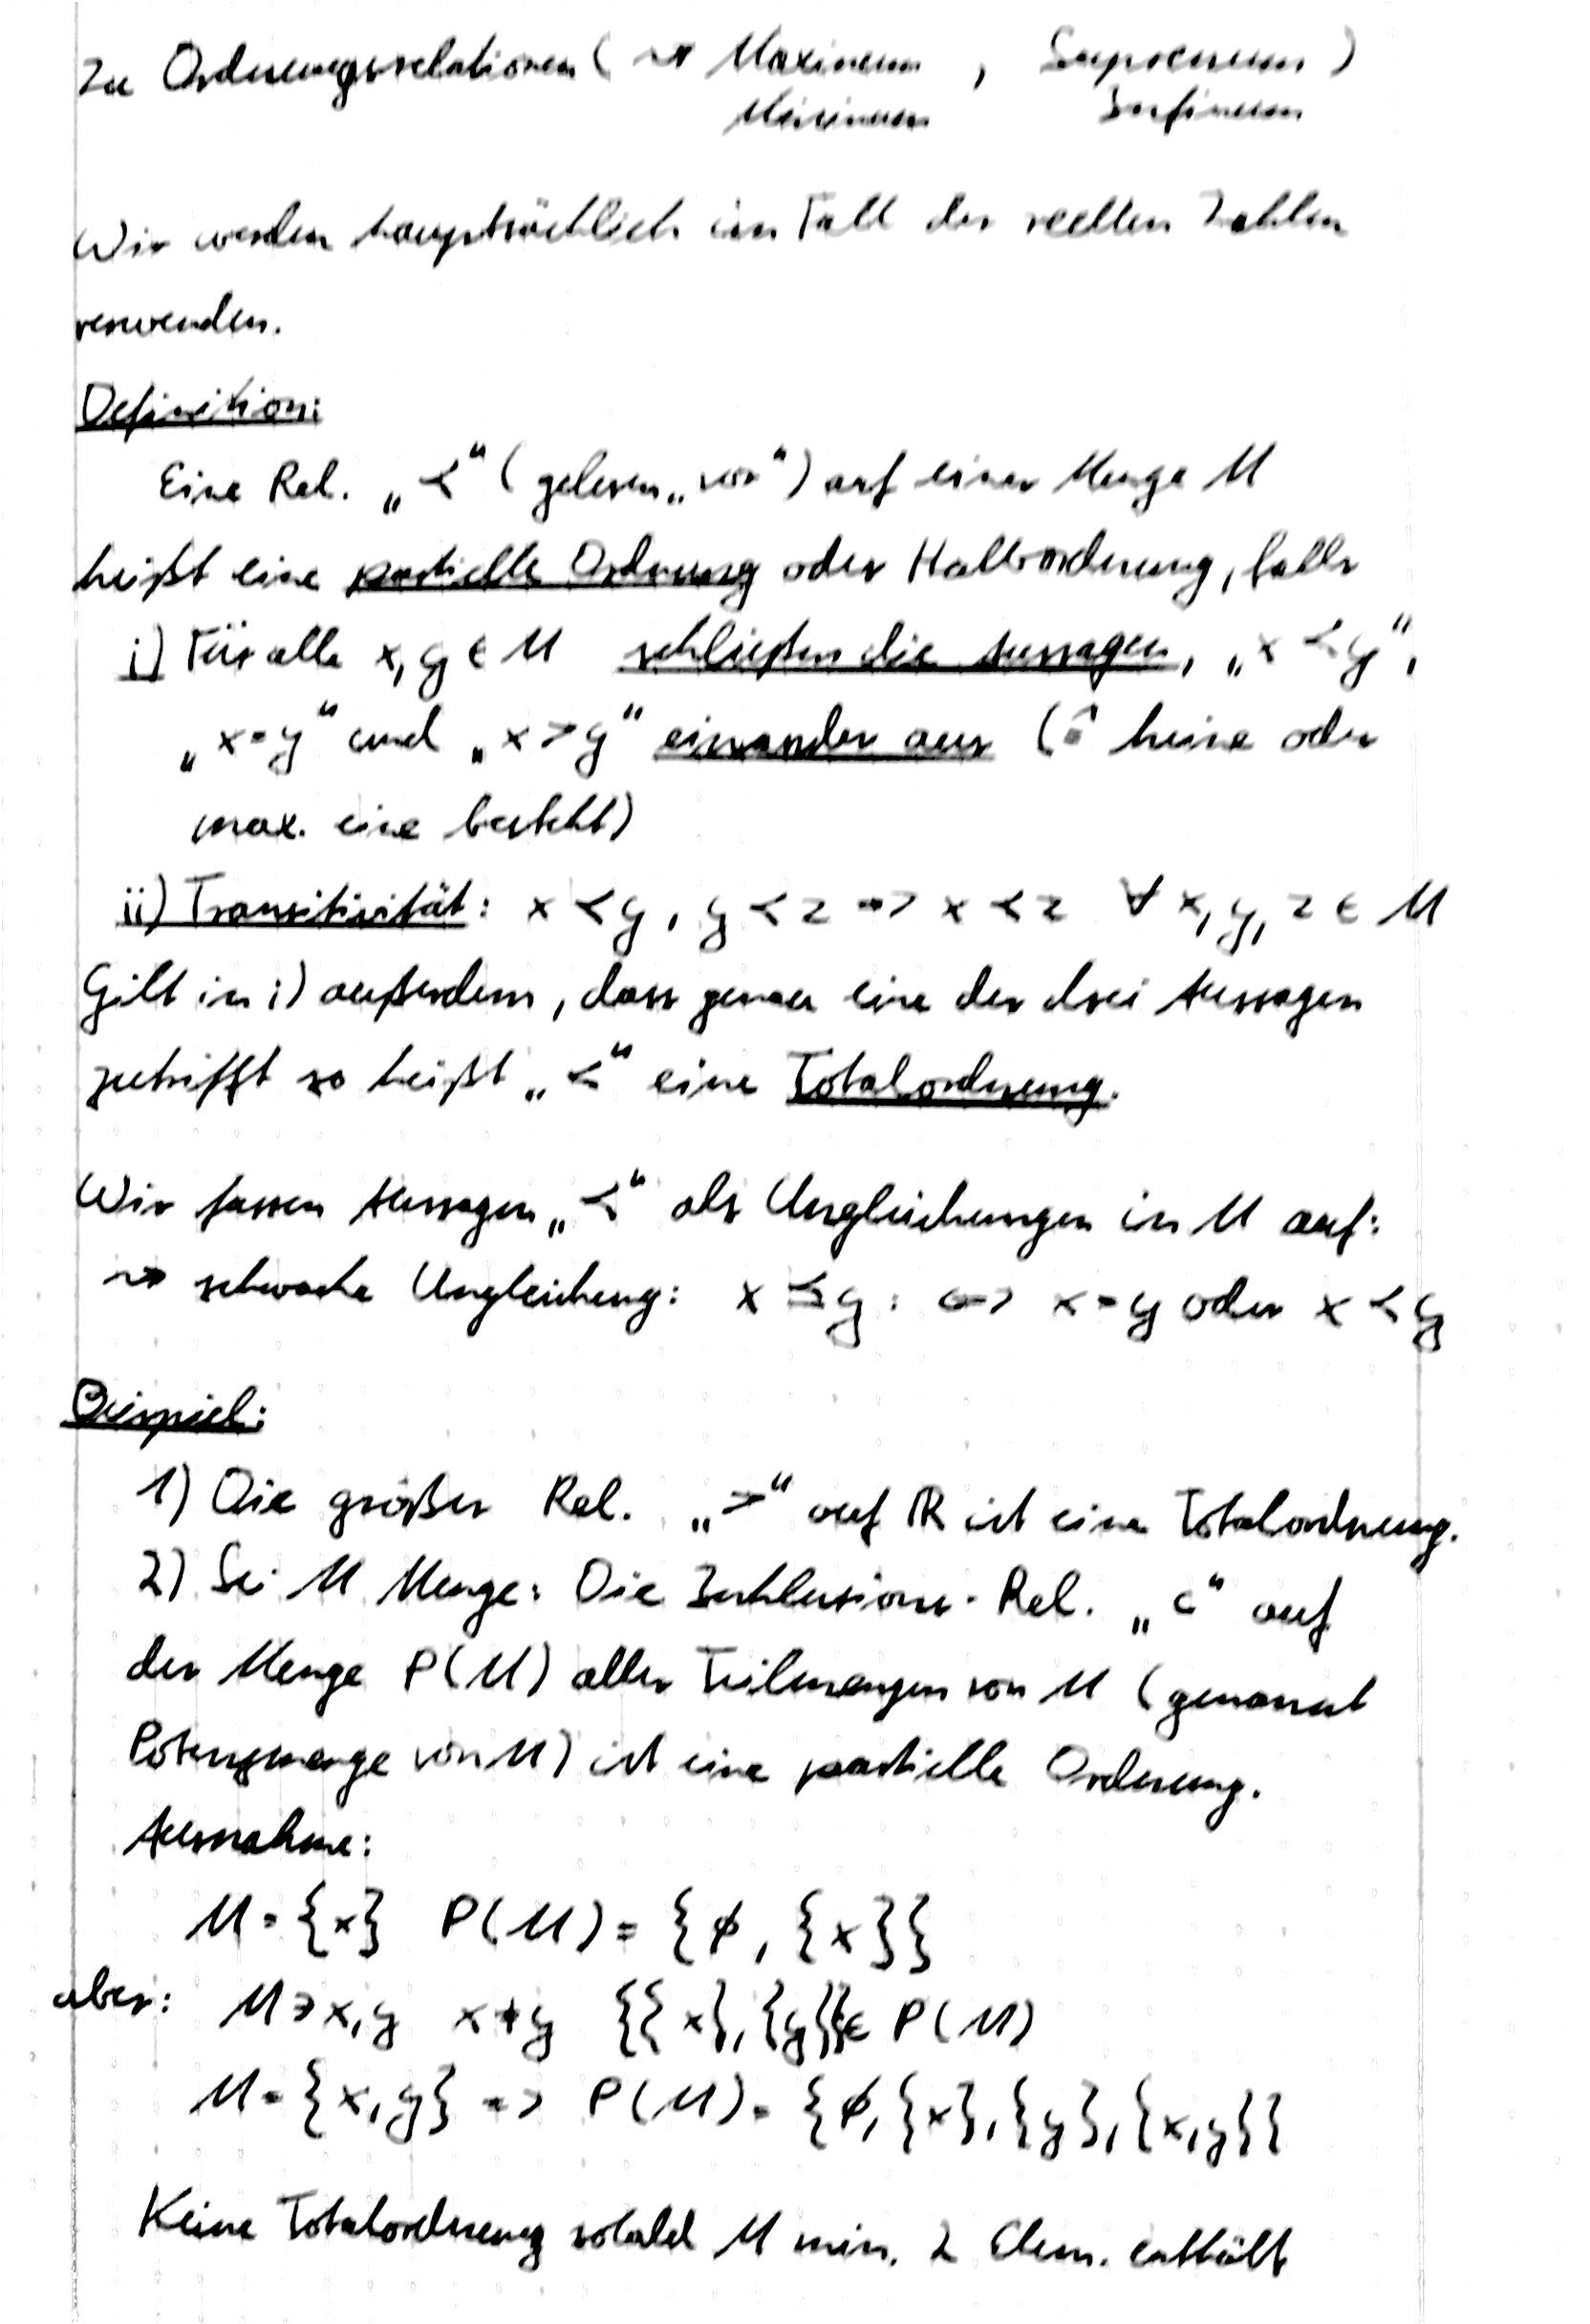 Zu Ordnungsrelationen ( ⇝ Maximum , Supremum )
Minimum Infimum
Wir werden hauptsächlich im Fall der reellen Zahlen
verwenden.
Definition:
Eine Rel. „≺“ (gelesen „vor“) auf einer Menge M
heißt eine partielle Ordnung oder Halbordnung, falls
i) Für alle x, y ∈ M schließen die Aussagen, „x ≺ y“,
„x = y“ und „x ≻ y“ einander aus (≙ keine oder
max. eine besteht)
ii) Transitivität: x ≺ y, y ≺ z => x ≺ z ∀ x, y, z ∈ M
Gilt in i) außerdem, dass genau eine der drei Aussagen
zutrifft so heißt „≺“ eine Totalordnung.
Wir fassen Aussagen „≺“ als Ungleichungen in M auf:
⇝ schwache Ungleichung: x ≼ y : <=> x = y oder x ≺ y
Beispiel:
1) Die größer Rel. „>“ auf ℝ ist eine Totalordnung.
2) Sei M Menge: Die Inklusions-Rel. „⊂“ auf
der Menge P(M) aller Teilmengen von M (genannt
Potenzmenge von M) ist eine partielle Ordnung.
Ausnahme:
M = {x} P(M) = {∅, {x}}
aber: M ∋ x, y x ≠ y {{x}, {y}} ∈ P(M)
M = {x, y} => P(M) = {∅, {x}, {y}, {x, y}}
Keine Totalordnung sobald M min. 2 Elem. enthält